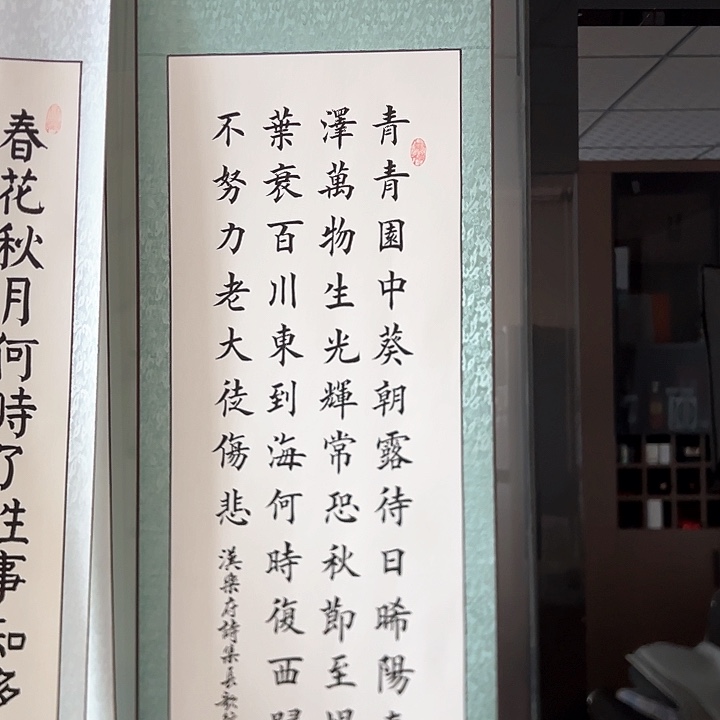 青青園中葵朝露待日晞陽
澤萬物生光輝常恐秋節至
葉衰百川東到海何時復西
不努力老大徒傷悲
漢樂府詩集長歌
春花秋月何時了往事知多